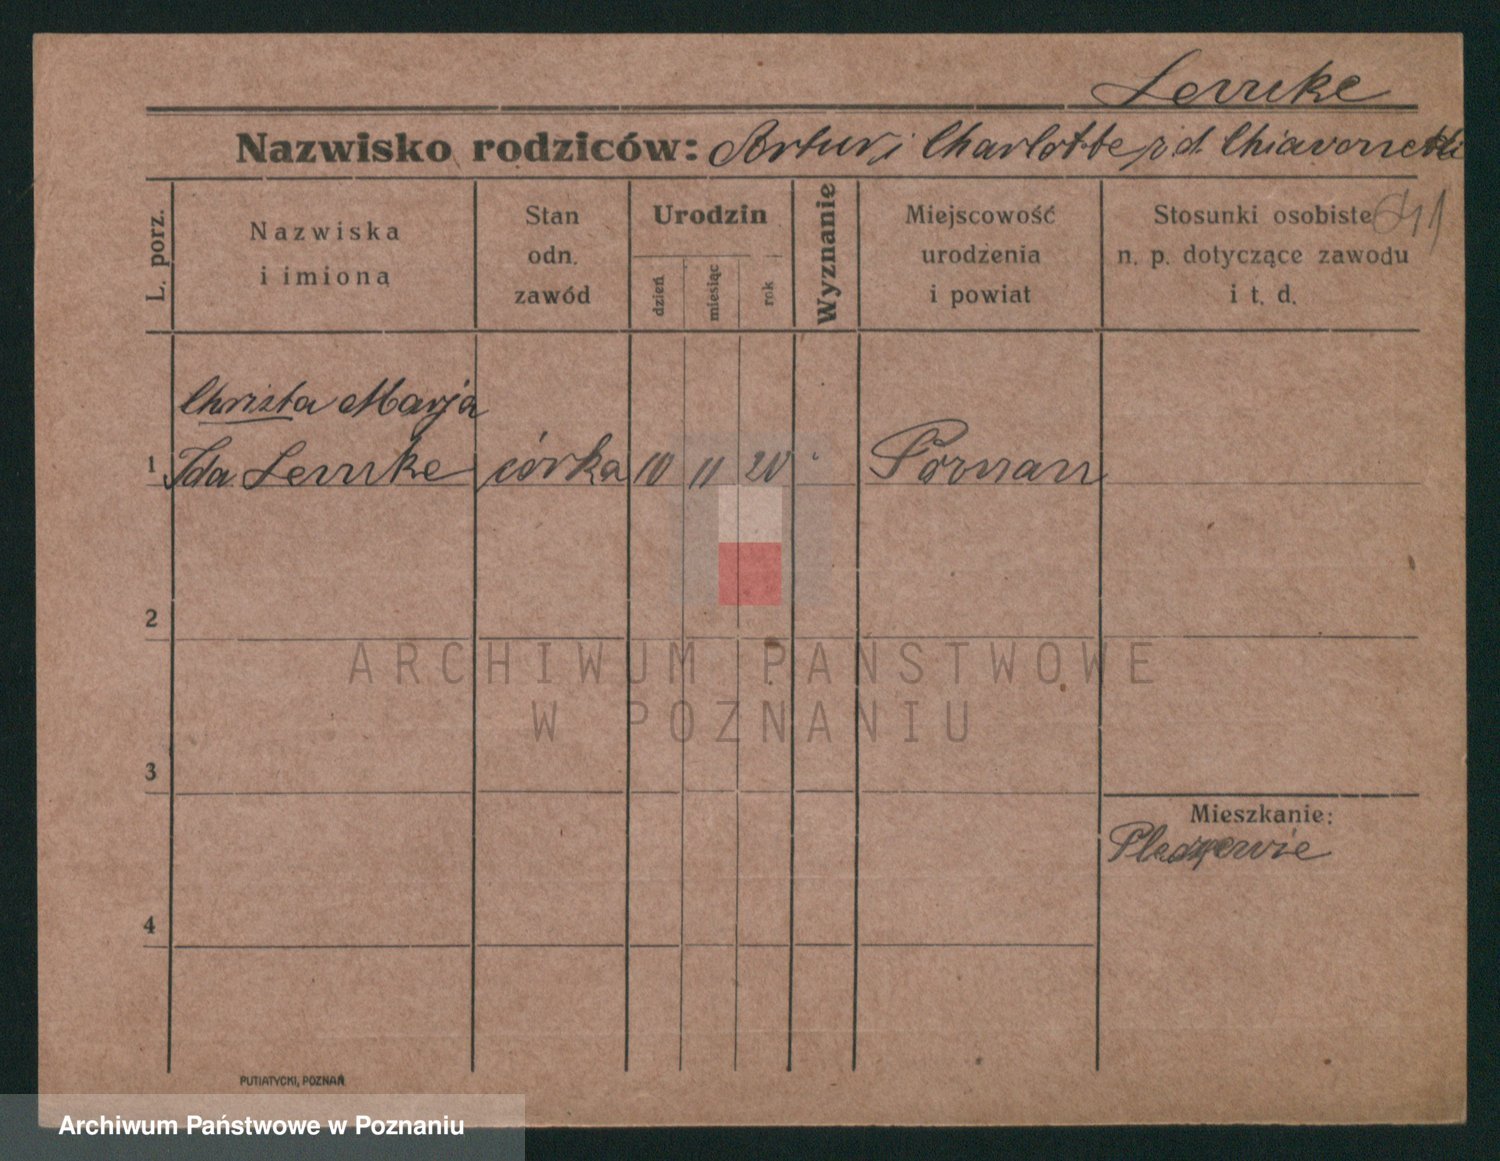 Lemke
Nazwisko rodziców: Artur i Charlotte z d. Chiavonetti
L. porz.
Nazwiska
i imiona
Stan
odn.
zawód
Urodzin
dzień
miesiąc
rok
Wyznanie
Miejscowość
urodzenia
i powiat
Stosunki osobiste
n. p. dotyczące zawodu
i t. d.
Christa Marja
1 Ida Lemke córka 10 11 20 Poznan
2
3
4
Mieszkanie:
PUTIATYCKI, POZNAŃ
ARCHIWUM PAŃSTWOWE
W POZNANIU
Archiwum Państwowe w Poznaniu